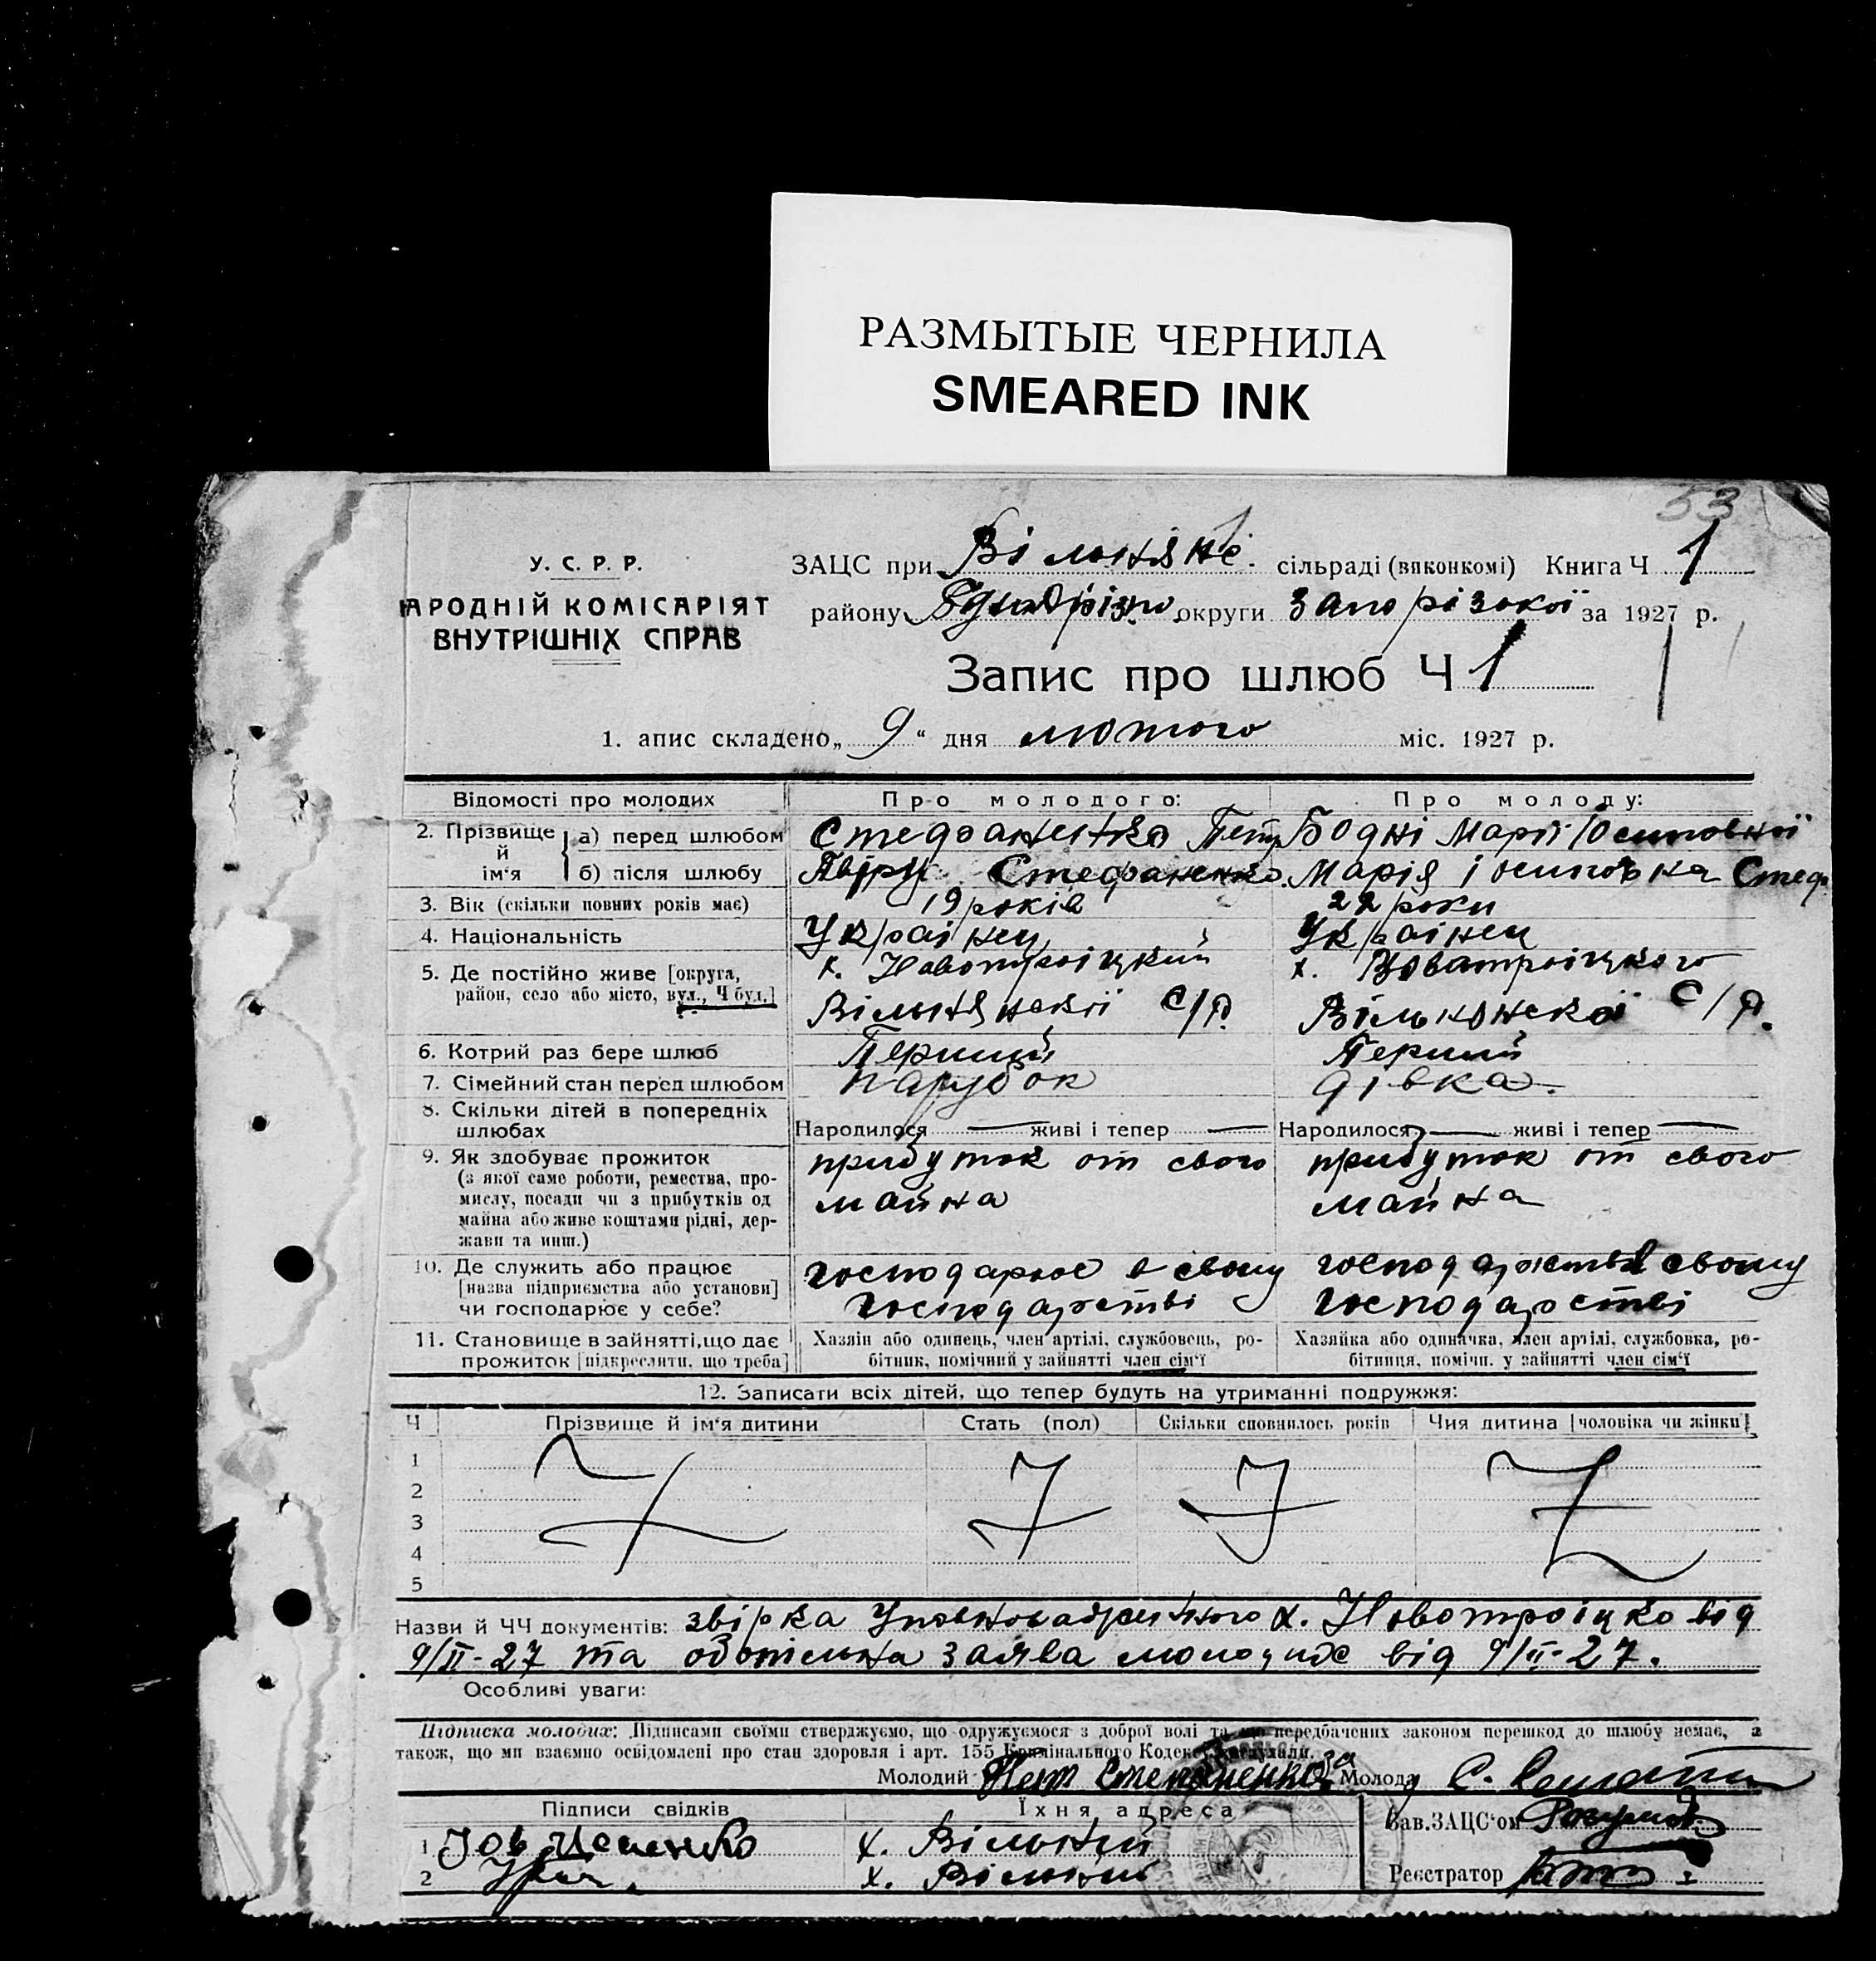 РАЗМЫТЫЕ ЧЕРНИЛА
SMEARED INK
53
У. С. Р. Р.
АРОДНІЙ КОМІСАРІЯТ
ВНУТРІШНІХ СПРАВ
ЗАЦС при сільраді (виконкомі) Книга Ч 1
району округи Запорізької за 1927 р.
Запис про шлюб Ч 1
1. апис складено „ 9 “ дня лютого міс. 1927 р.
Відомості про молодих Про молодого: Про молоду:
2. Прізвище й ім‘я а) перед шлюбом Стефаненка Петр Бодні Марії Юсиповної
б) після шлюбу Стефаненко. Марія Стеф
3. Вік (скільки повних років має) 19 років 22 роки
4. Національність Украінец Украінец
5. Де постійно живе [округа, х. Новотроіцкий х. Новатроіцкого
район, село або місто, вул., Ч буд.] с/р. с/р.
6. Котрий раз бере шлюб Перший Перший
7. Сімейний стан перед шлюбом парубок дівка.
8. Скільки дітей в попередніх
шлюбах Народилося — живі і тепер — Народилося — живі і тепер —
9. Як здобуває прожиток прибуток от свого прибуток от свого
(з якої саме роботи, ремества, про- майна майна
мислу, посади чи з прибутків од
майна або живе коштами рідні, дер-
жави та инш.)
10. Де служить або працює господарює в свому свому
[назва підприємства або установи] господарстві господарстві
чи господарює у себе?
11. Становище в зайнятті, що дає Хазяїн або одинець, член артілі, службовець, ро- Хазяйка або одиначка, член артілі, службовка, ро-
прожиток [підкреслити, що треба] бітник, помічний у зайнятті член сім‘ї бітниця, помічн. у зайнятті член сім‘ї
12. Записати всіх дітей, що тепер будуть на утриманні подружжя:
Ч Прізвище й ім‘я дитини Стать (пол) Скільки сповнилось років Чия дитина [чоловіка чи жінки]
1
2
3
4
5
Назви й ЧЧ документів: звірка х. Новотроіцко від
9/II-27 та заява від 9/II-27.
Особливі уваги:
Підписка молодих: Підписами своїми стверджуємо, що одружуємося з доброї волі та що передбачених законом перешкод до шлюбу немає, а
також, що ми взаємно освідомлені про стан здоровля і арт. 155 Кримінального Кодексу
Молодий Петр Степаненко за Молода
Підписи свідків Їхня адреса Зав. ЗАЦС‘ом
1 Іов х. Вільний
2 х. Реєстратор